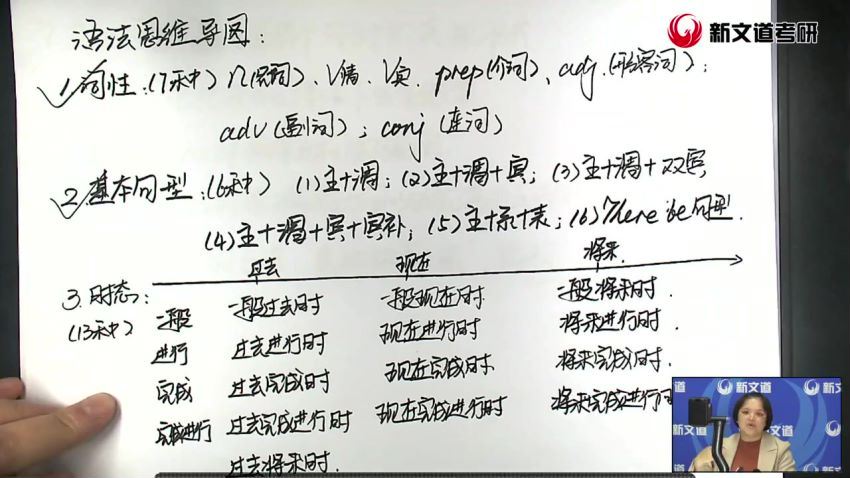 新文道考研
语法思维导图：
1.词性：(7种) n(名词)、V情、V实、prep(介词)、adj.(形容词)；
adv(副词)；conj(连词)
2.基本句型：(6种) (1)主+谓；(2)主+谓+宾；(3)主+谓+双宾
(4)主+谓+宾+宾补；(5)主+系+表；(6)There be句型.
过去 现在 将来
3.时态：
(13种)
一般 一般过去时 一般现在时. 一般将来时.
进行 过去进行时 现在进行时 将来进行时.
完成 过去完成时 现在完成时. 将来完成时.
完成进行 过去完成进行时 现在完成进行时 将来完成进行时
过去将来时.
新文道
新文道
新文道